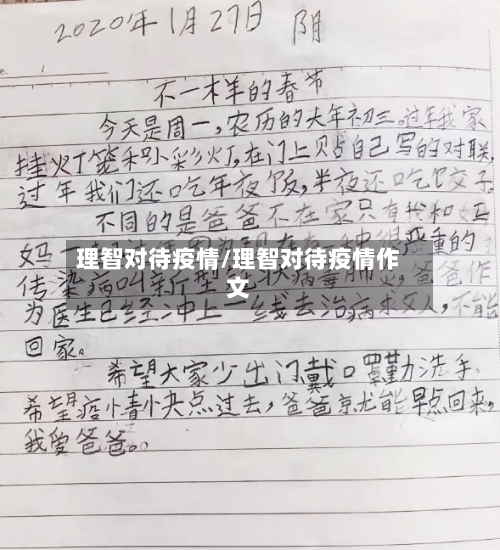 2020年1月27日 阴
不一样的春节
今天是周一,农历的大年初三。过年我家
挂火丁笼和小彩火丁,在门上贝占自己写的对联,
过年我们还吃年夜饭,半夜还吃饺子
不同的是爸爸不在家只有我和
妈 很严重的
理智对待疫情/理智对待疫情作
文
传染病叫新型 状病毒肺炎,爸爸作
为医生已经冲上一线去治病救人,不能
回家。
希望大家少出门戴口罩勤洗手,
希望疫情快点过去,爸爸就能早点回来。
我爱爸爸。